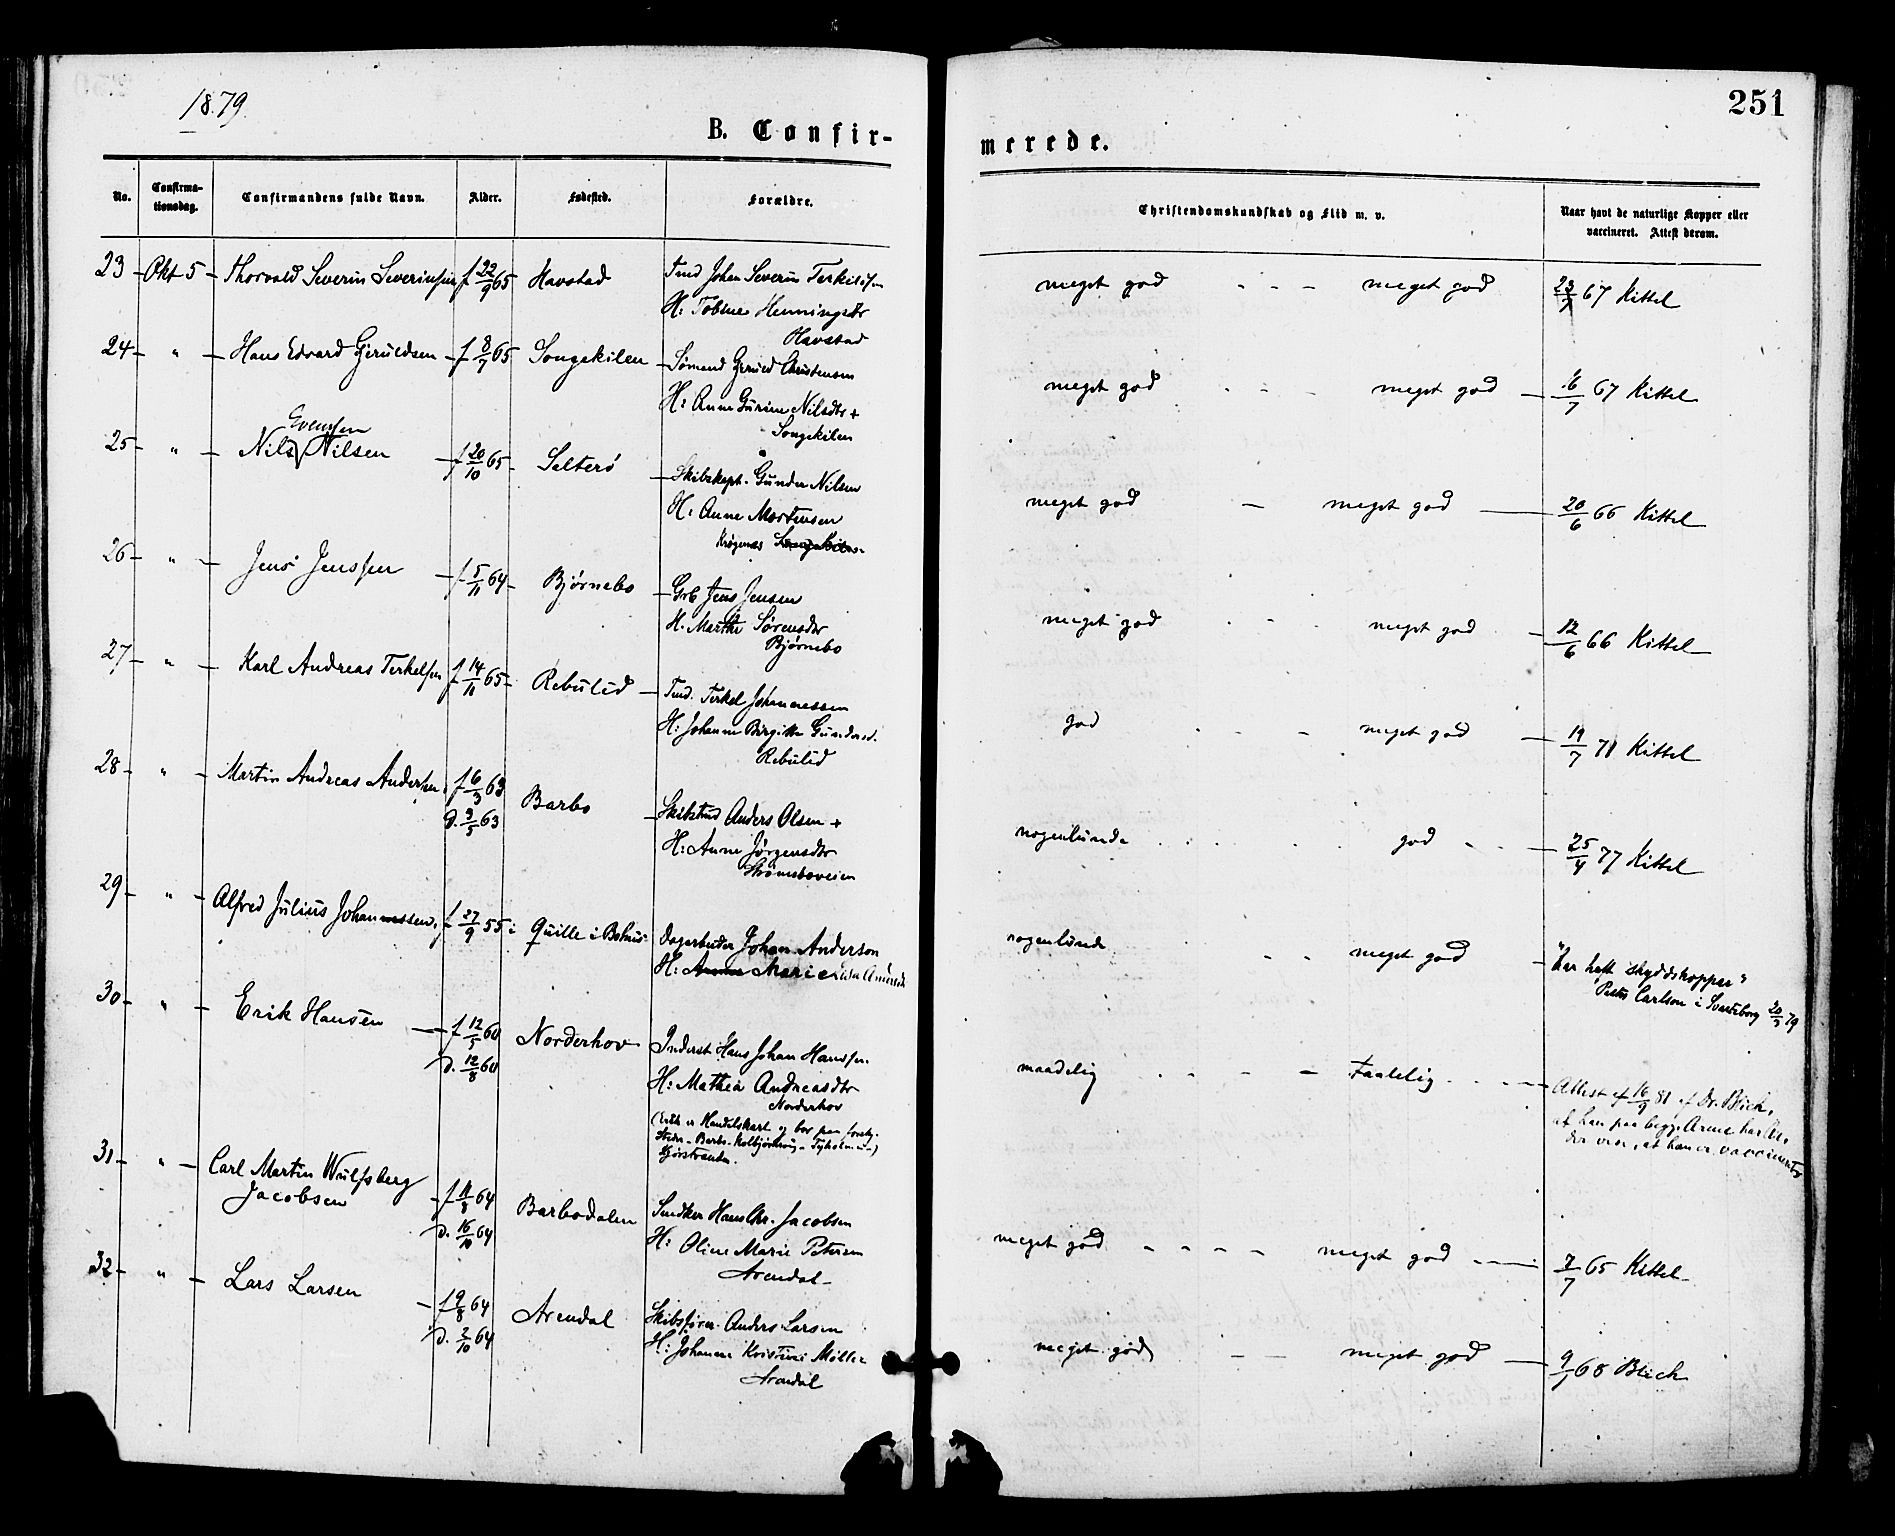 1879.
251
B. Confir-
merede.
No.
Confirma-
tionsdag.
Confirmandens fulde Navn.
Alder.
Fødested.
Forældre.
Christendomskundskab og Flid m. v.
Naar havt de naturlige Kopper eller
vaccineret. Attest derom.
23 - Okt 5 - Thorvald Severin Severinsen f 22/9 65 Havstad
Tmd Johan Severin Terkelsen
H: Tobine Henningsdtr
Havstad
meget god - - - meget god 23/7 67 Kittel
24 - " - Hans Edvard Gjeruldsen - f 8/7 65 Songekilen
Sømand Gjeruld Christensen
H: Anne Gurine Nilsdtr +
Songekilen
meget god - - - meget god - 16/7 67 Kittel
Evensen
25 - " - Nils Nilsen - f 20/10 65 - Salterö
Skibskapt. Gunder Nilsen
H: Anne Mortensen
Krøgenes Songekilen
meget god - meget god - 20/6 66 Kittel
26 - " - Jens Jenssen - f 5/11 64 - Bjørnebo
Grb Jens Jensen
H. Marthe Sørensdtr
Bjørnebo
meget god - - - meget god - 12/6 66 Kittel
27 - " - Karl Andreas Terkelsen f 14/11 65 - Rebulid
Tmd. Terkel Johannessen
H: Johanne Birgitte Gundersd.
Rebulid
god - - - meget god - 19/7 71 Kittel
28 - " - Martin Andreas Andersen f 6/3 63 Barbo
d. 3/5 63
Skibstmd Anders Olsen +
H: Anne Jörgensdtr
Strømsboveien
nogenlunde - - - god - - - 25/4 77 Kittel
29 - " - Alfred Julius Johannessen, f 27/9 55 i Quille i Bohus
Dagarbeider Johan Anderson
H: Anna Marie
nogenlunde - - meget god - "har haft skyddskoppor"
Carlson i Svarteborg 20/3 79
30 - " - Erik Hansen - f 12/5 60 Norderhov
d. 12/8 60
Inderst Hans Johan Hanssen
H: Mathea Andreasdtr
Norderhov
(Erik er Handelskarl og bor paa forskj.
Steder - Barbo - Kolbjørnsvig - Tyholmen -)
maadelig - - - - taalelig - - - Attest af 16/9 81 af Dr. Blich,
at han paa begge Arme har Ar,
der viser, at han er vaccineret
31 - " - Carl Martin Wulfsberg
Jacobsen - f 11/8 64 Barbodalen
d. 16/10 64
Snedker Hans Chr. Jacobsen
H: Oline Marie Petersen
Arendal -
meget god - - - - meget god - - - 7/7 65 Kittel
32 - " - Lars Larsen - f 9/8 64 Arendal
d. 2/10 64
Skibsfører Anders Larsen
H: Johanne Kristine Møller
Arendal
meget god - - meget god - 9/1 68 Blich